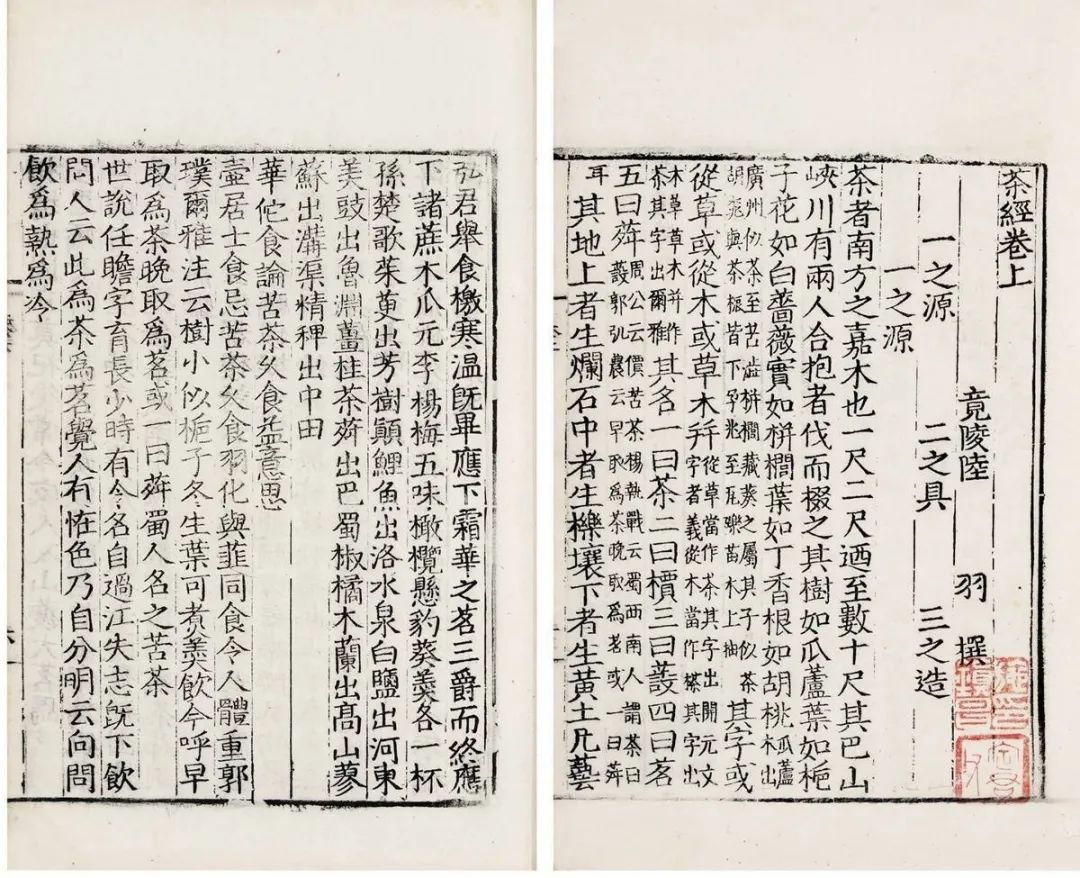 茶經卷上
竟陵陸 羽 撰
一之源 二之具 三之造
一之源
茶者南方之嘉木也一尺二尺迺至數十尺其巴山
峽川有兩人合抱者伐而掇之其樹如瓜蘆葉如梔
子花如白薔薇實如栟櫚葉如丁香根如胡桃瓜蘆木出
廣州似茶至苦澁栟櫚藏葵之屬其子似茶胡桃與茶根皆下孕兆至瓦礫苗木上抽其字或
從草或從木或草木并從草當作茶其字出開元文字者義從木當作搽其字出
本草草木并作茶其字出爾雅其名一曰茶二曰檟三曰蔎四曰茗
五曰荈周公云檟苦茶楊執戟云蜀西南人謂茶曰蔎郭弘農云早取爲茶晚取爲茗或一曰荈
耳其地上者生爛石中者生櫟壤下者生黃土凡藝
弘君舉食檄寒温既畢應下霜華之茗三爵而終應
下諸蔗木瓜元李楊梅五味橄欖懸豹葵羹各一杯
孫楚歌茱萸出芳樹顛鯉魚出洛水泉白鹽出河東
美豉出魯淵薑桂茶荈出巴蜀椒橘木蘭出高山蓼
蘇出溝渠精稗出中田
華佗食論苦茶久食益意思
壺居士食忌苦茶久食羽化與韮同食令人體重郭
璞爾雅注云樹小似梔子冬生葉可煮羹飲今呼早
取爲茶晚取爲茗或一曰荈蜀人名之苦茶
世說任瞻字育長少時有令名自過江失志既下飲
問人云此爲茶爲茗覺人有恠色乃自分明云向問
飲爲熱爲冷